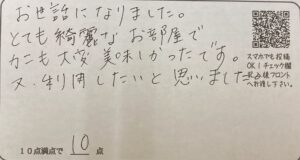 お世話になりました。
とても綺麗なお部屋で
カニも大変美味しかったです。
又、利用したいと思いました
スマホでも投稿
OK！チェック欄
後フロント
へお渡し下さい。
10点満点で 10 点